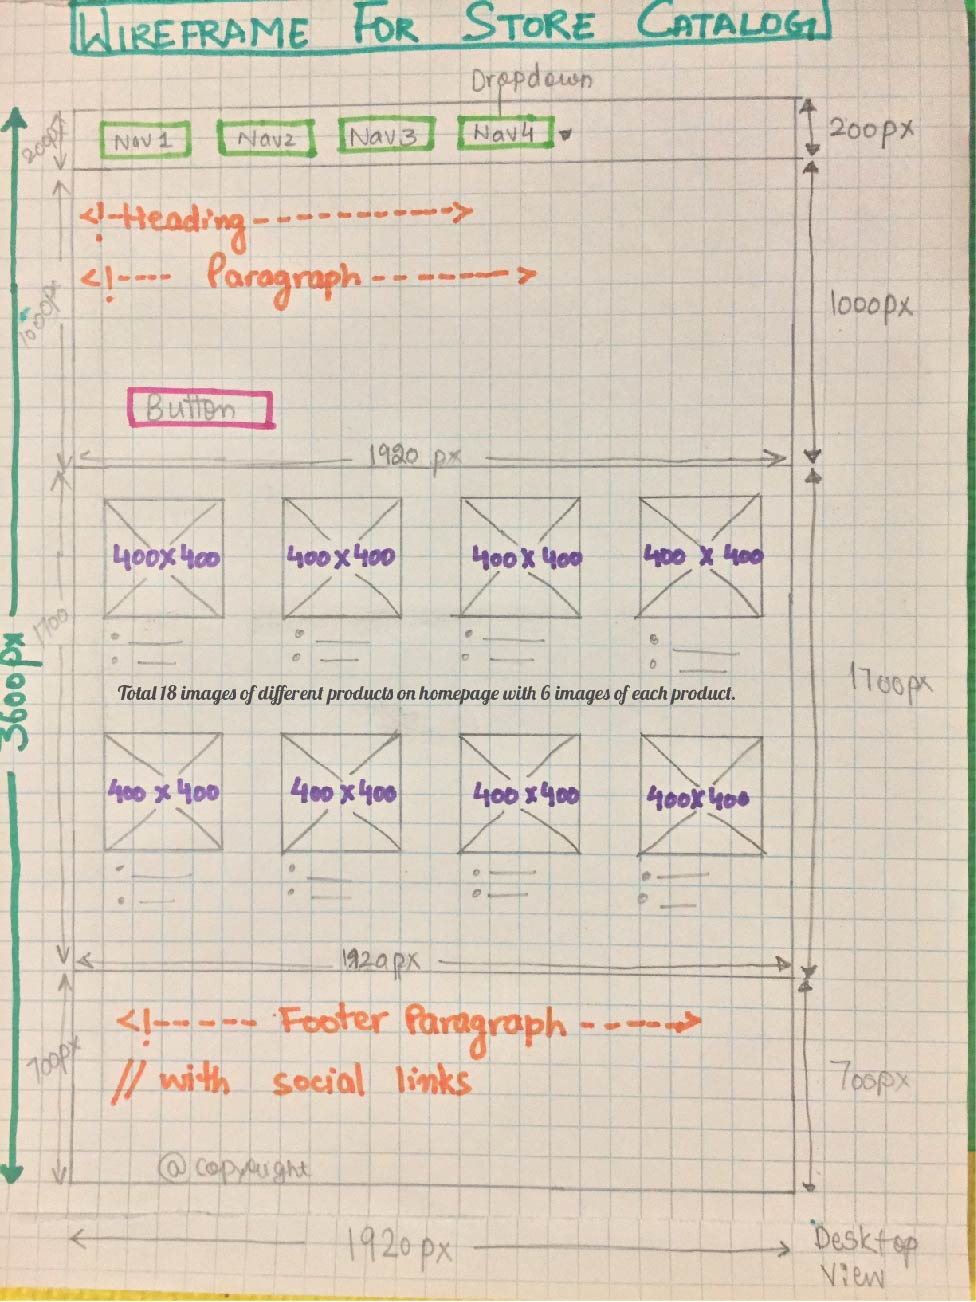 WIREFRAME FOR STORE CATALOG
Dropdown
200px
Nav1 Nav2 Nav3 Nav4
200px
<!-Heading----------->
<!---- Paragraph------->
1000px
1000px
Button
1920 px
400x400 400x400 400x400 400 x 400
1700
3600px
Total 18 images of different products on homepage with 6 images of each product.
1700px
400 x 400 400 x400 400 x400 400x400
1920px
<!----- Footer Paragraph ----->
700px
// with social links
700px
@copyright
1920px
Desktop
View